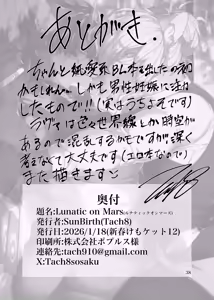 あとがき.
ちゃんと純愛系BL本を出したの初
かもしれん。しかも男性妊娠に注力
したもので!!(実はうちよそです)
ラヴァは色々世界線とか時空が
あるので混乱するかもですが深く
考えなくて大丈夫です(エロ本なので)
また描きます
Tach8
奥付
題名:Lunatic on Mars(ルナティックオンマーズ)
発行者:SunBirth(Tach8)
発行日:2026/1/18(新春けもケット12)
印刷所:株式会社ポプルス様
連絡先:tach910@gmail.com
X:Tach8sosaku
28